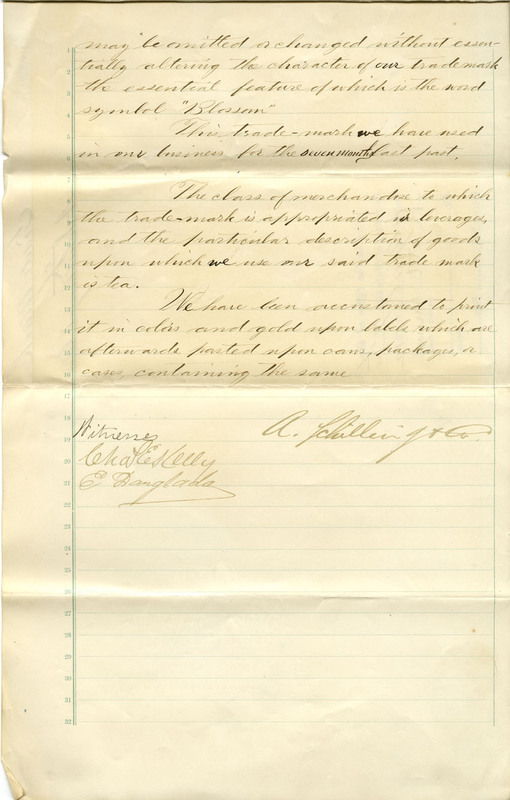 may be omitted or changed without essen-
tially altering the character of our trade mark
the essential feature of which is the word
symbol "Blossom"
This trade-mark we have used
in our business for the seven months last past.
The class of merchandise to which
the trade-mark is appropriated is beverages,
and the particular description of goods
upon which we use our said trade mark
is tea.
We have been accustomed to print
it in colors and gold upon labels which are
afterwards pasted upon cans, packages, or
cases, containing the same
Witnesses
A. Schilling & Co.
Chas E Kelly
E Danglada
1
2
3
4
5
6
7
8
9
10
11
12
13
14
15
16
17
18
19
20
21
22
23
24
25
26
27
28
29
30
31
32